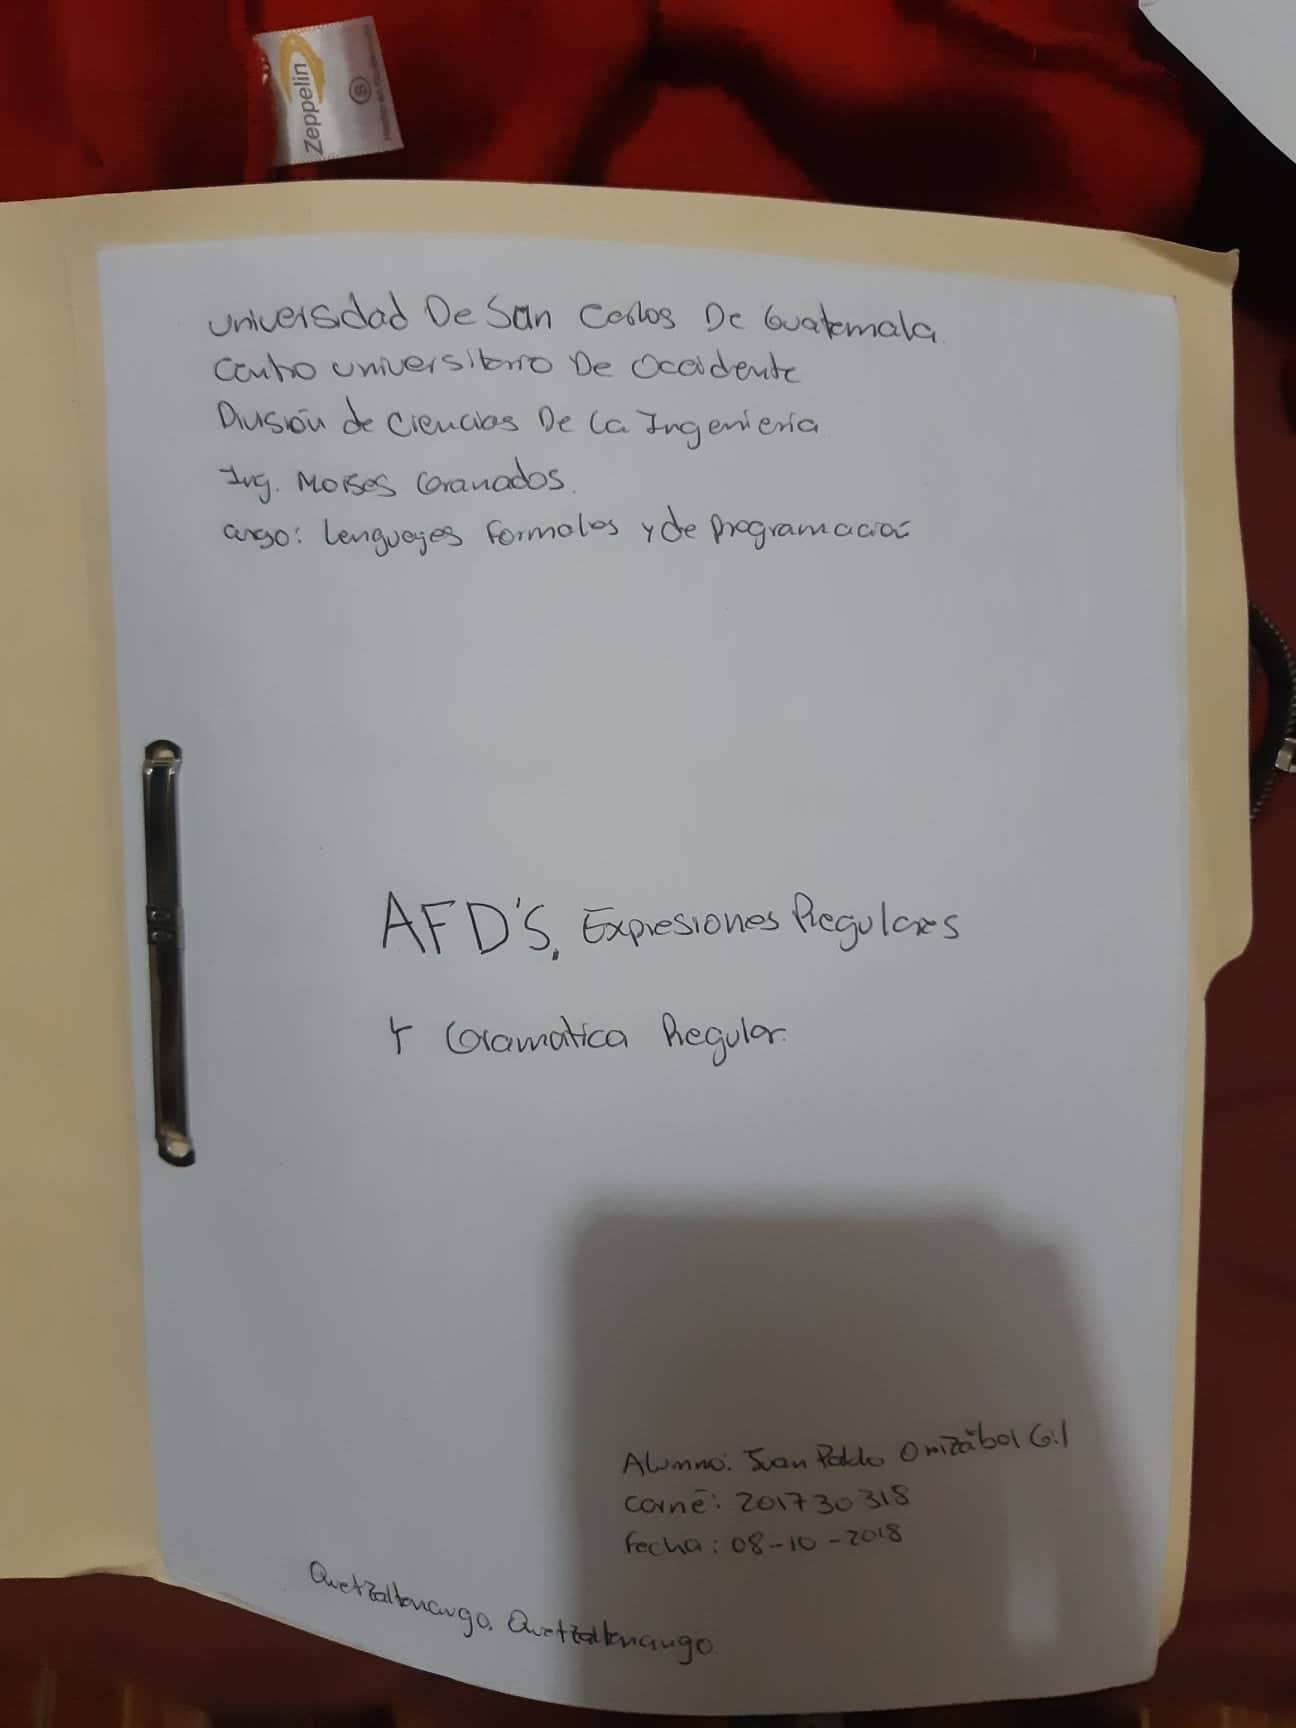 Zeppelin
Universidad De San Carlos De Guatemala
Centro universitario De Occidente
División de Ciencias De La Ingeniería
Ing. Moises Granados.
curso: Lenguajes Formales y de Programación
AFD'S, Expresiones Regulares
Y Gramatica Regular.
Alumno: Juan Pablo Orizábal Gil
Carné: 201730318
Fecha: 08-10-2018
Quetzaltenango, Quetzaltenango